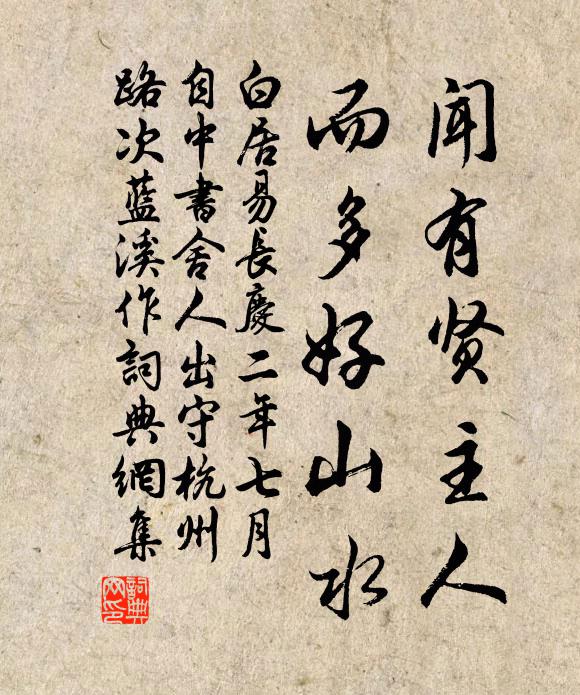 闻有贤主人
而多好山水
白居易長慶二年七月
自中書舍人出守杭州
路次藍溪作詞典網集
詞典
网印